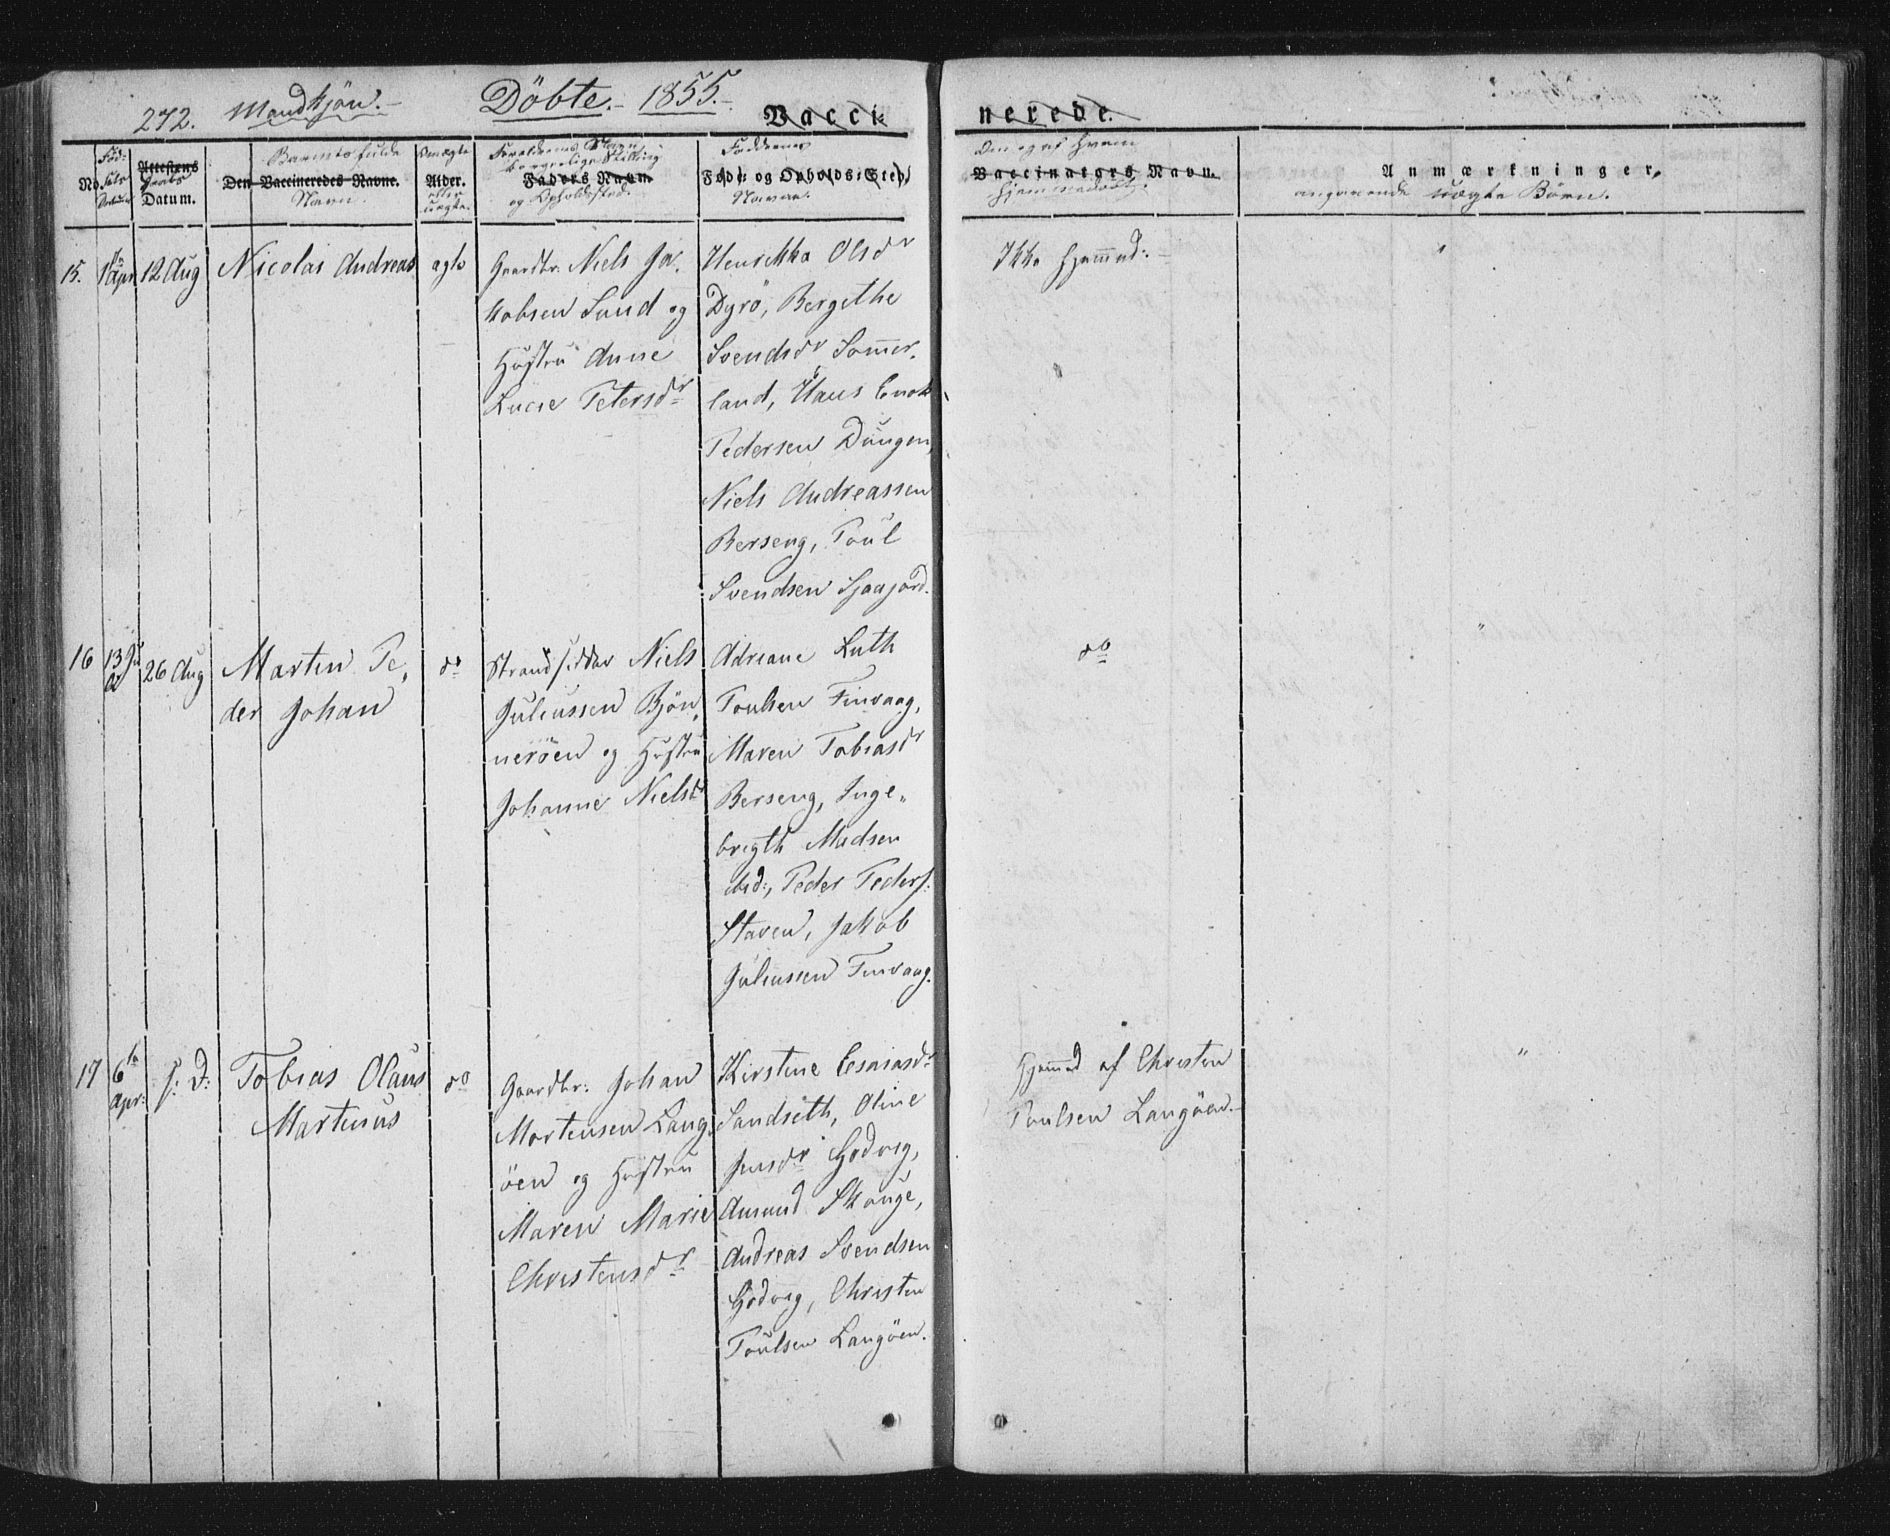 272. Mandkjön.- Döbte.- 1855.- Vacci- nerede.
No. Attestens Datum. Den Vaccineredes Navne. Alder. Faders Navn. Føde- og Opholds-Sted. Vaccinators Navn. Anmærkninger.
Barnets fulde Navn.
og Opholdssted.
Faddernes Navne.
Om og af Hvem hjemmedöbt.
angaaende uægte Börn.
15. 1ste Apr 12 Aug Nicolai Andreas ægte
Gaardbr. Niels Ja-
kobsen Sund og
Hustru Anne
Lucie Petersdr
Henrikka Olsdr
Dyrö, Bergithe
Svendsdr Sommer-
land, Hans Enok
Pedersen Dungen,
Niels Andreassen
Berseng, Poul
Svendsen Sjaajord.
Ikke Hjemmed: -
"
16 13 26 Aug Martin Pe-
der Johan
do
Strandsidder Niels
Juliussen Bjön-
neröen og Hustru
Johanne Nielsdr
Adriane Luth
Poulsen Finvaag,
Maren Tobiasdr
Berseng, Inge-
brigth Madsen
ibid:, Peder Peders:
Staven, Jakob
Juliussen Finvaag.
do
"
17 6te Apr: s: D: Tobias Olaus
Martinus
do
Gaardbr: Johan
Mortensen Lang-
öen og Hustru
Maren Marie
Christensdr
Kirstine Esaiasdr
Sandseth, Oline
Jensdr Godveg,
Amund Skauge,
Andreas Svendsen
Godveg, Christen
Poulsen Langöen.
Hjemmed af Christen
Poulsen Langöen.-
"